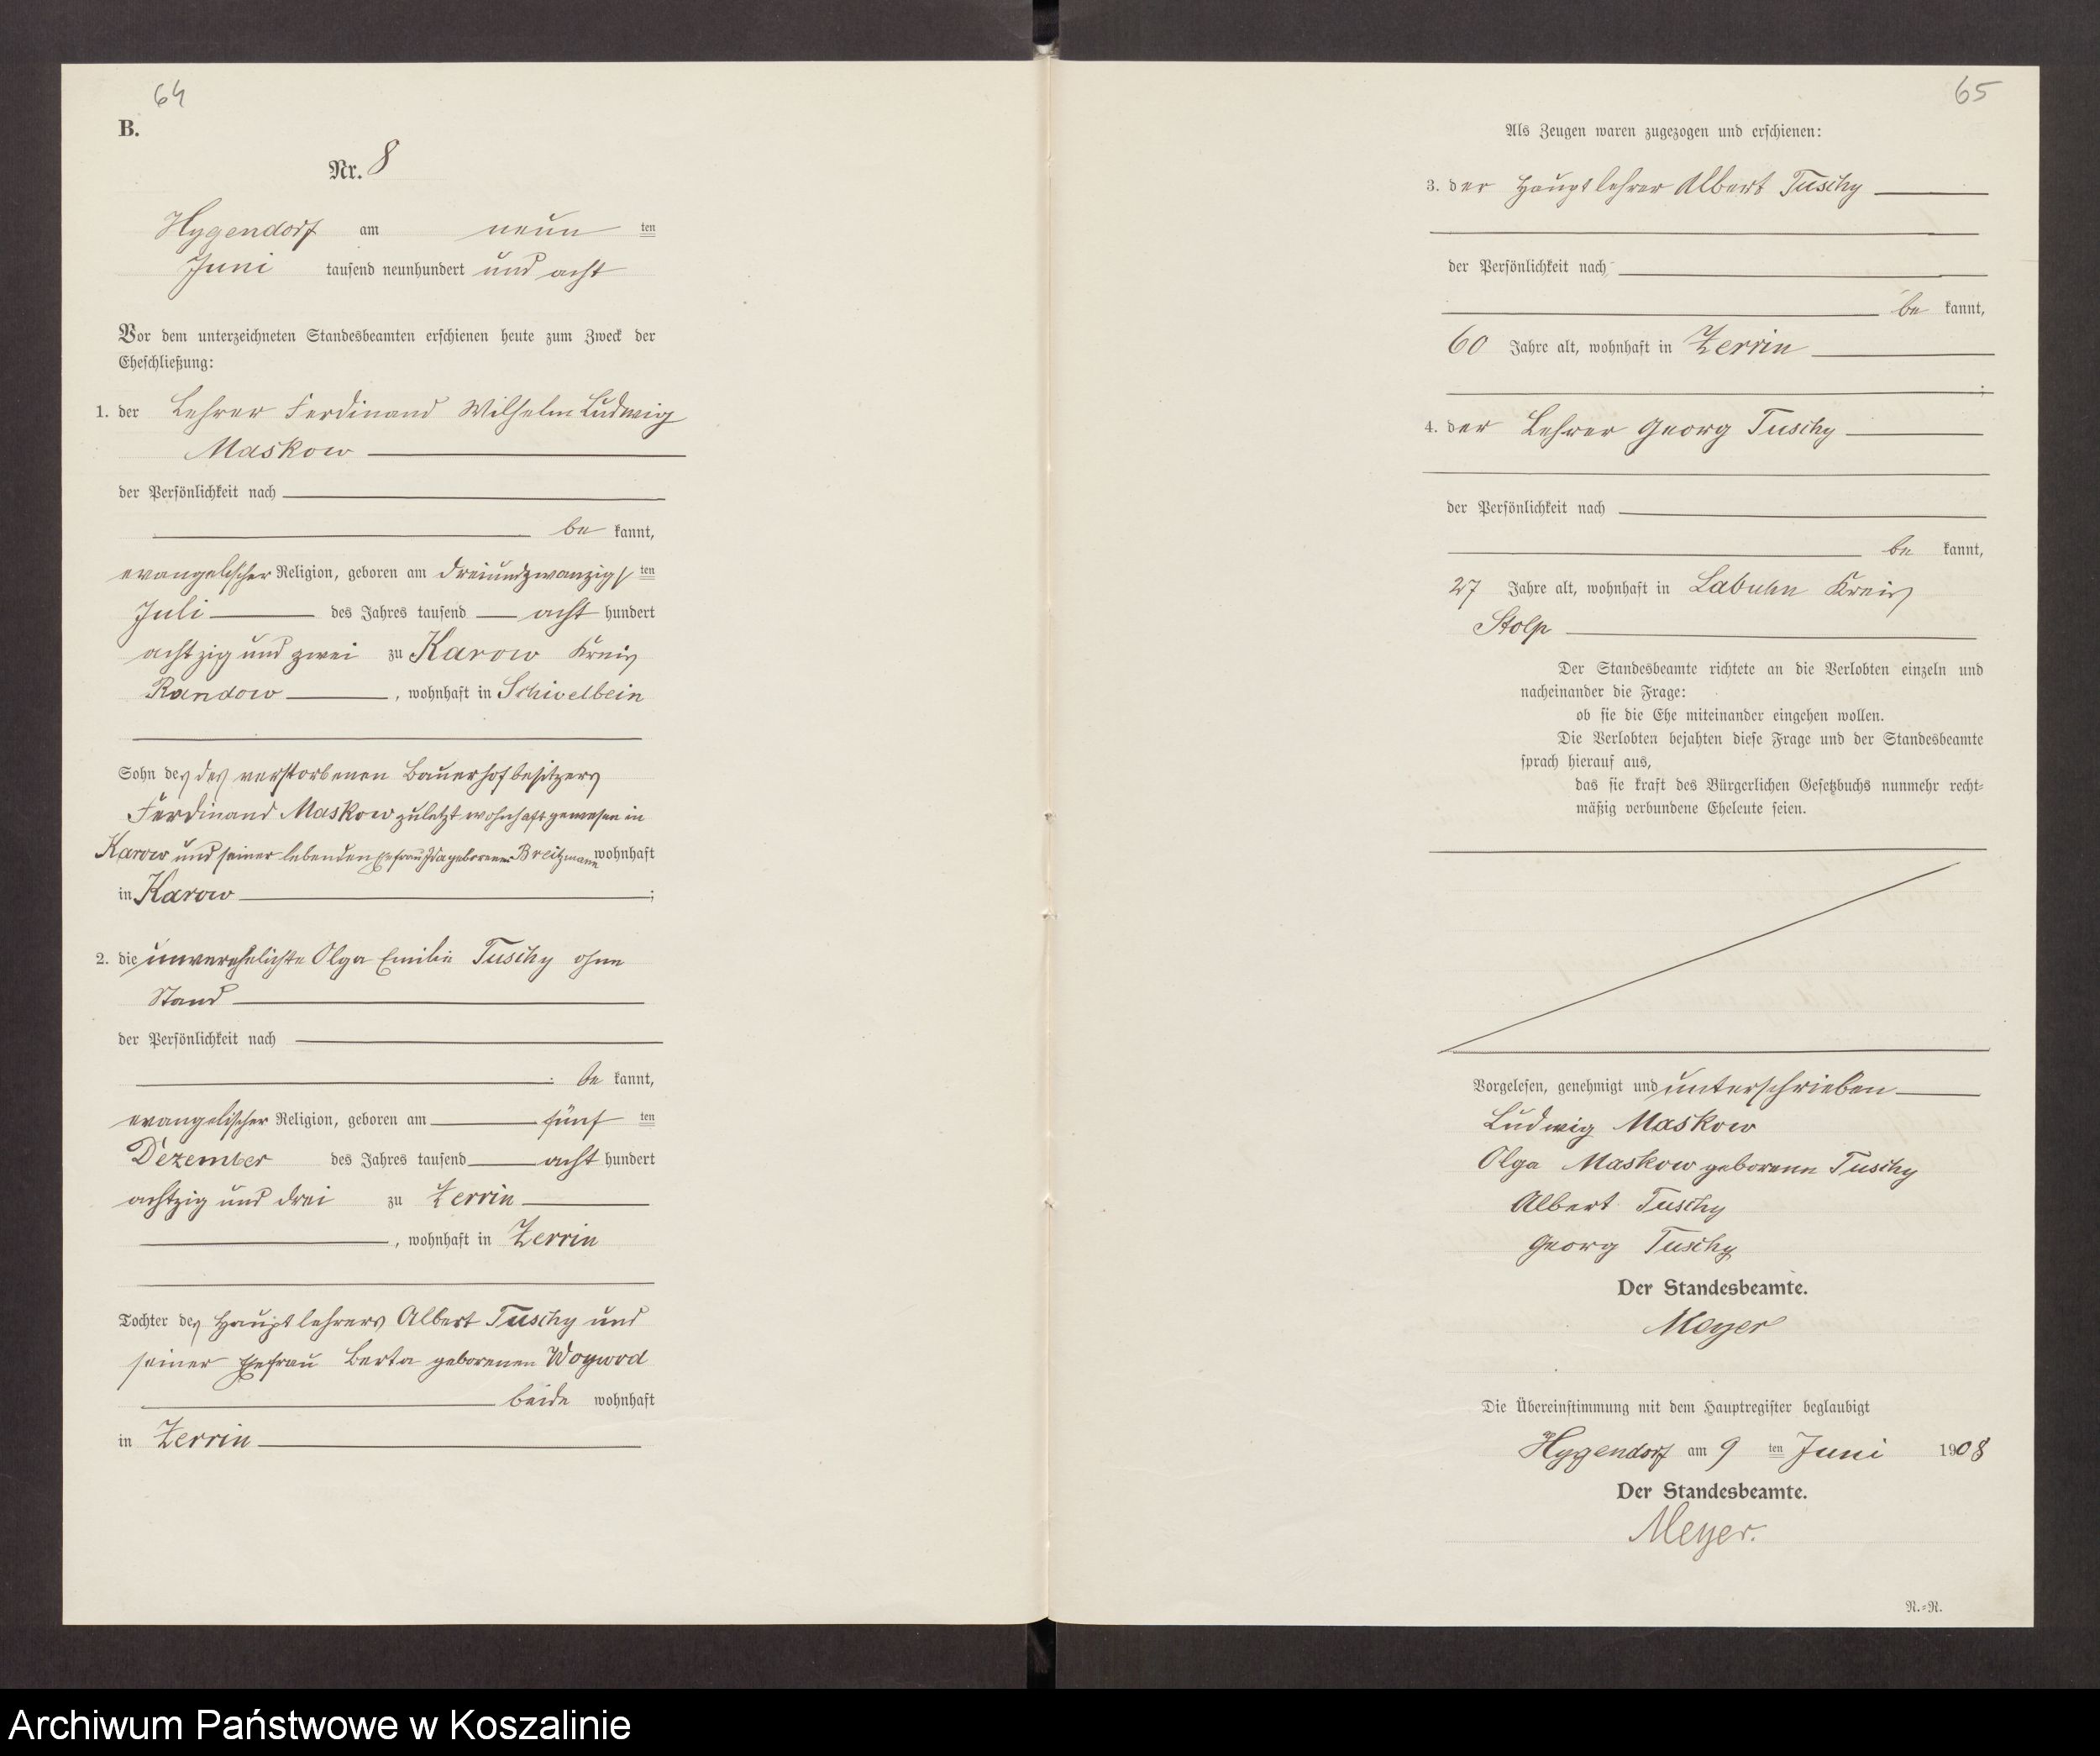 64
B.
Nr. 8
Hygendorf am neun ten
Juni tausend neunhundert und acht
Vor dem unterzeichneten Standesbeamten erschienen heute zum Zweck der
Eheschließung:
1. der Lehrer Ferdinand Wilhelm Ludwig
Maskow
der Persönlichkeit nach
be kannt,
evangelischer Religion, geboren am dreiundzwanzigsten
Juli des Jahres tausend acht hundert
achtzig und zwei zu Karow Kreis
Randow, wohnhaft in Schivelbein
Sohn des des verstorbenen Bauerhofbesitzers
Ferdinand Maskow zuletzt wohnhaft gewesen in
Karow und seiner lebenden Ehefrau Ida geborenen Breitzmann wohnhaft
in Karow ;
2. die unverehelichte Olga Emilie Tuschy ohne
Stand
der Persönlichkeit nach
be kannt,
evangelischer Religion, geboren am fünf ten
Dezember des Jahres tausend acht hundert
achtzig und drei zu Zerrin
, wohnhaft in Zerrin
Tochter des Hauptlehrers Albert Tuschy und
seiner Ehefrau Berta geborenen Woywod
beide wohnhaft
in Zerrin
65
Als Zeugen waren zugezogen und erschienen:
3. der Hauptlehrer Albert Tuschy
der Persönlichkeit nach
be kannt,
60 Jahre alt, wohnhaft in Zerrin
;
4. der Lehrer Georg Tuschy
der Persönlichkeit nach
be kannt,
27 Jahre alt, wohnhaft in Labuhn Kreis
Stolp
Der Standesbeamte richtete an die Verlobten einzeln und
nacheinander die Frage:
ob sie die Ehe miteinander eingehen wollen.
Die Verlobten bejahten diese Frage und der Standesbeamte
sprach hierauf aus,
das sie kraft des Bürgerlichen Gesetzbuchs nunmehr recht-
mäßig verbundene Eheleute seien.
Vorgelesen, genehmigt und unterschrieben
Ludwig Maskow
Olga Maskow geborene Tuschy
Albert Tuschy
Georg Tuschy
Der Standesbeamte.
Meyer
Die Übereinstimmung mit dem Hauptregister beglaubigt
Hygendorf am 9 ten Juni 1908
Der Standesbeamte.
Meyer.
R.=R.
Archiwum Państwowe w Koszalinie